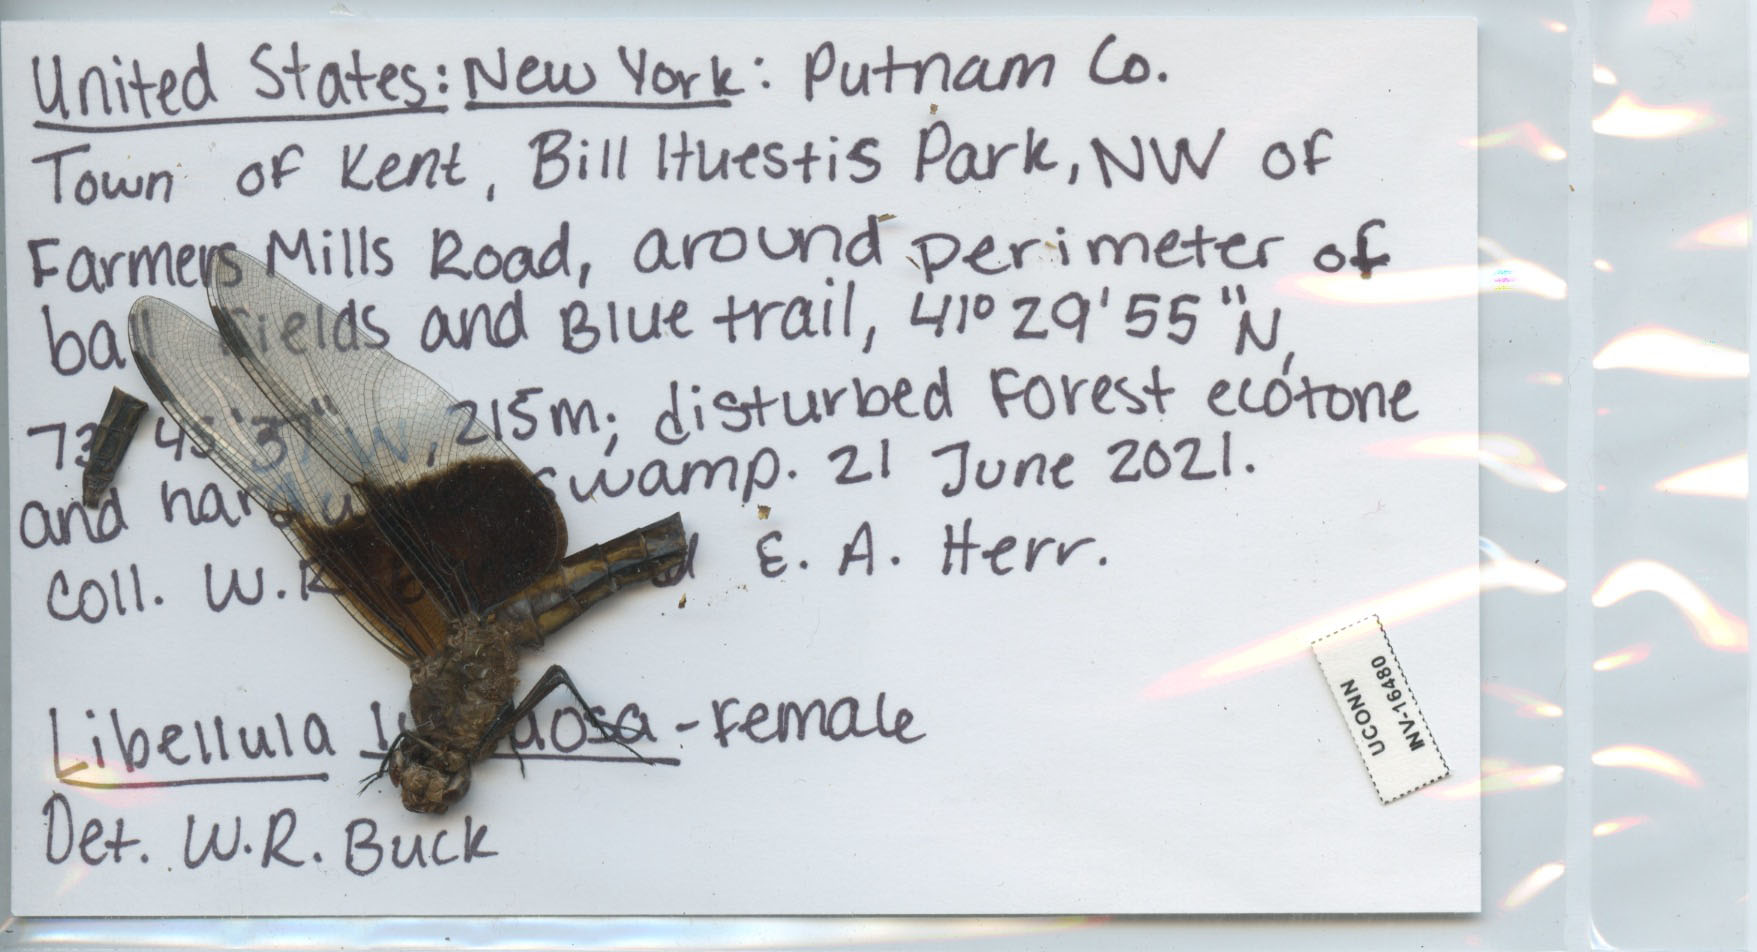 United States: New York: Putnam Co.
Town of Kent, Bill Huestis Park, NW of
Farmers Mills Road, around perimeter of
ball fields and Blue trail, 41° 29' 55" N,
45' 37" W, 215m; disturbed Forest ecotone
and swamp. 21 June 2021.
Coll. W.R. E. A. Herr.
Libellula - Female
Det. W.R. Buck
UCONN
INV-16480